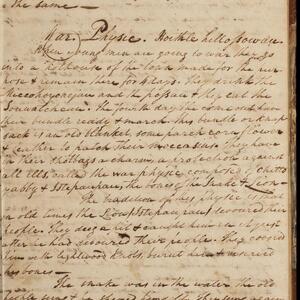 the same —
War, Physic. Hoithle hillissowau.
When young men are going to war they go
into a hothouse of the town made for the pur-
pose & remain there for 4 days. They drink the
Miccohoyonejau and the possau & they eat the
Souwatchcau. The fourth day they come out, have
their bundle ready & march. This bundle or knap-
sack is an old blanket, some parch corn flower
& leather to patch their moccasins. They have
in their shotbags a charm, a protection against
all ills, called the war physic, composed of chitto
gabby & Istepaupau, the bones of the Snake & Lion —
The tradition of this physic is that
in old times the Lion (Istepaupau) devoured their
people. They dug a pit & caught him in it just
after he had devoured their people. They covered
him with lightwood knots, burnt him & reserved
his bones —
The snake was in the water, the old